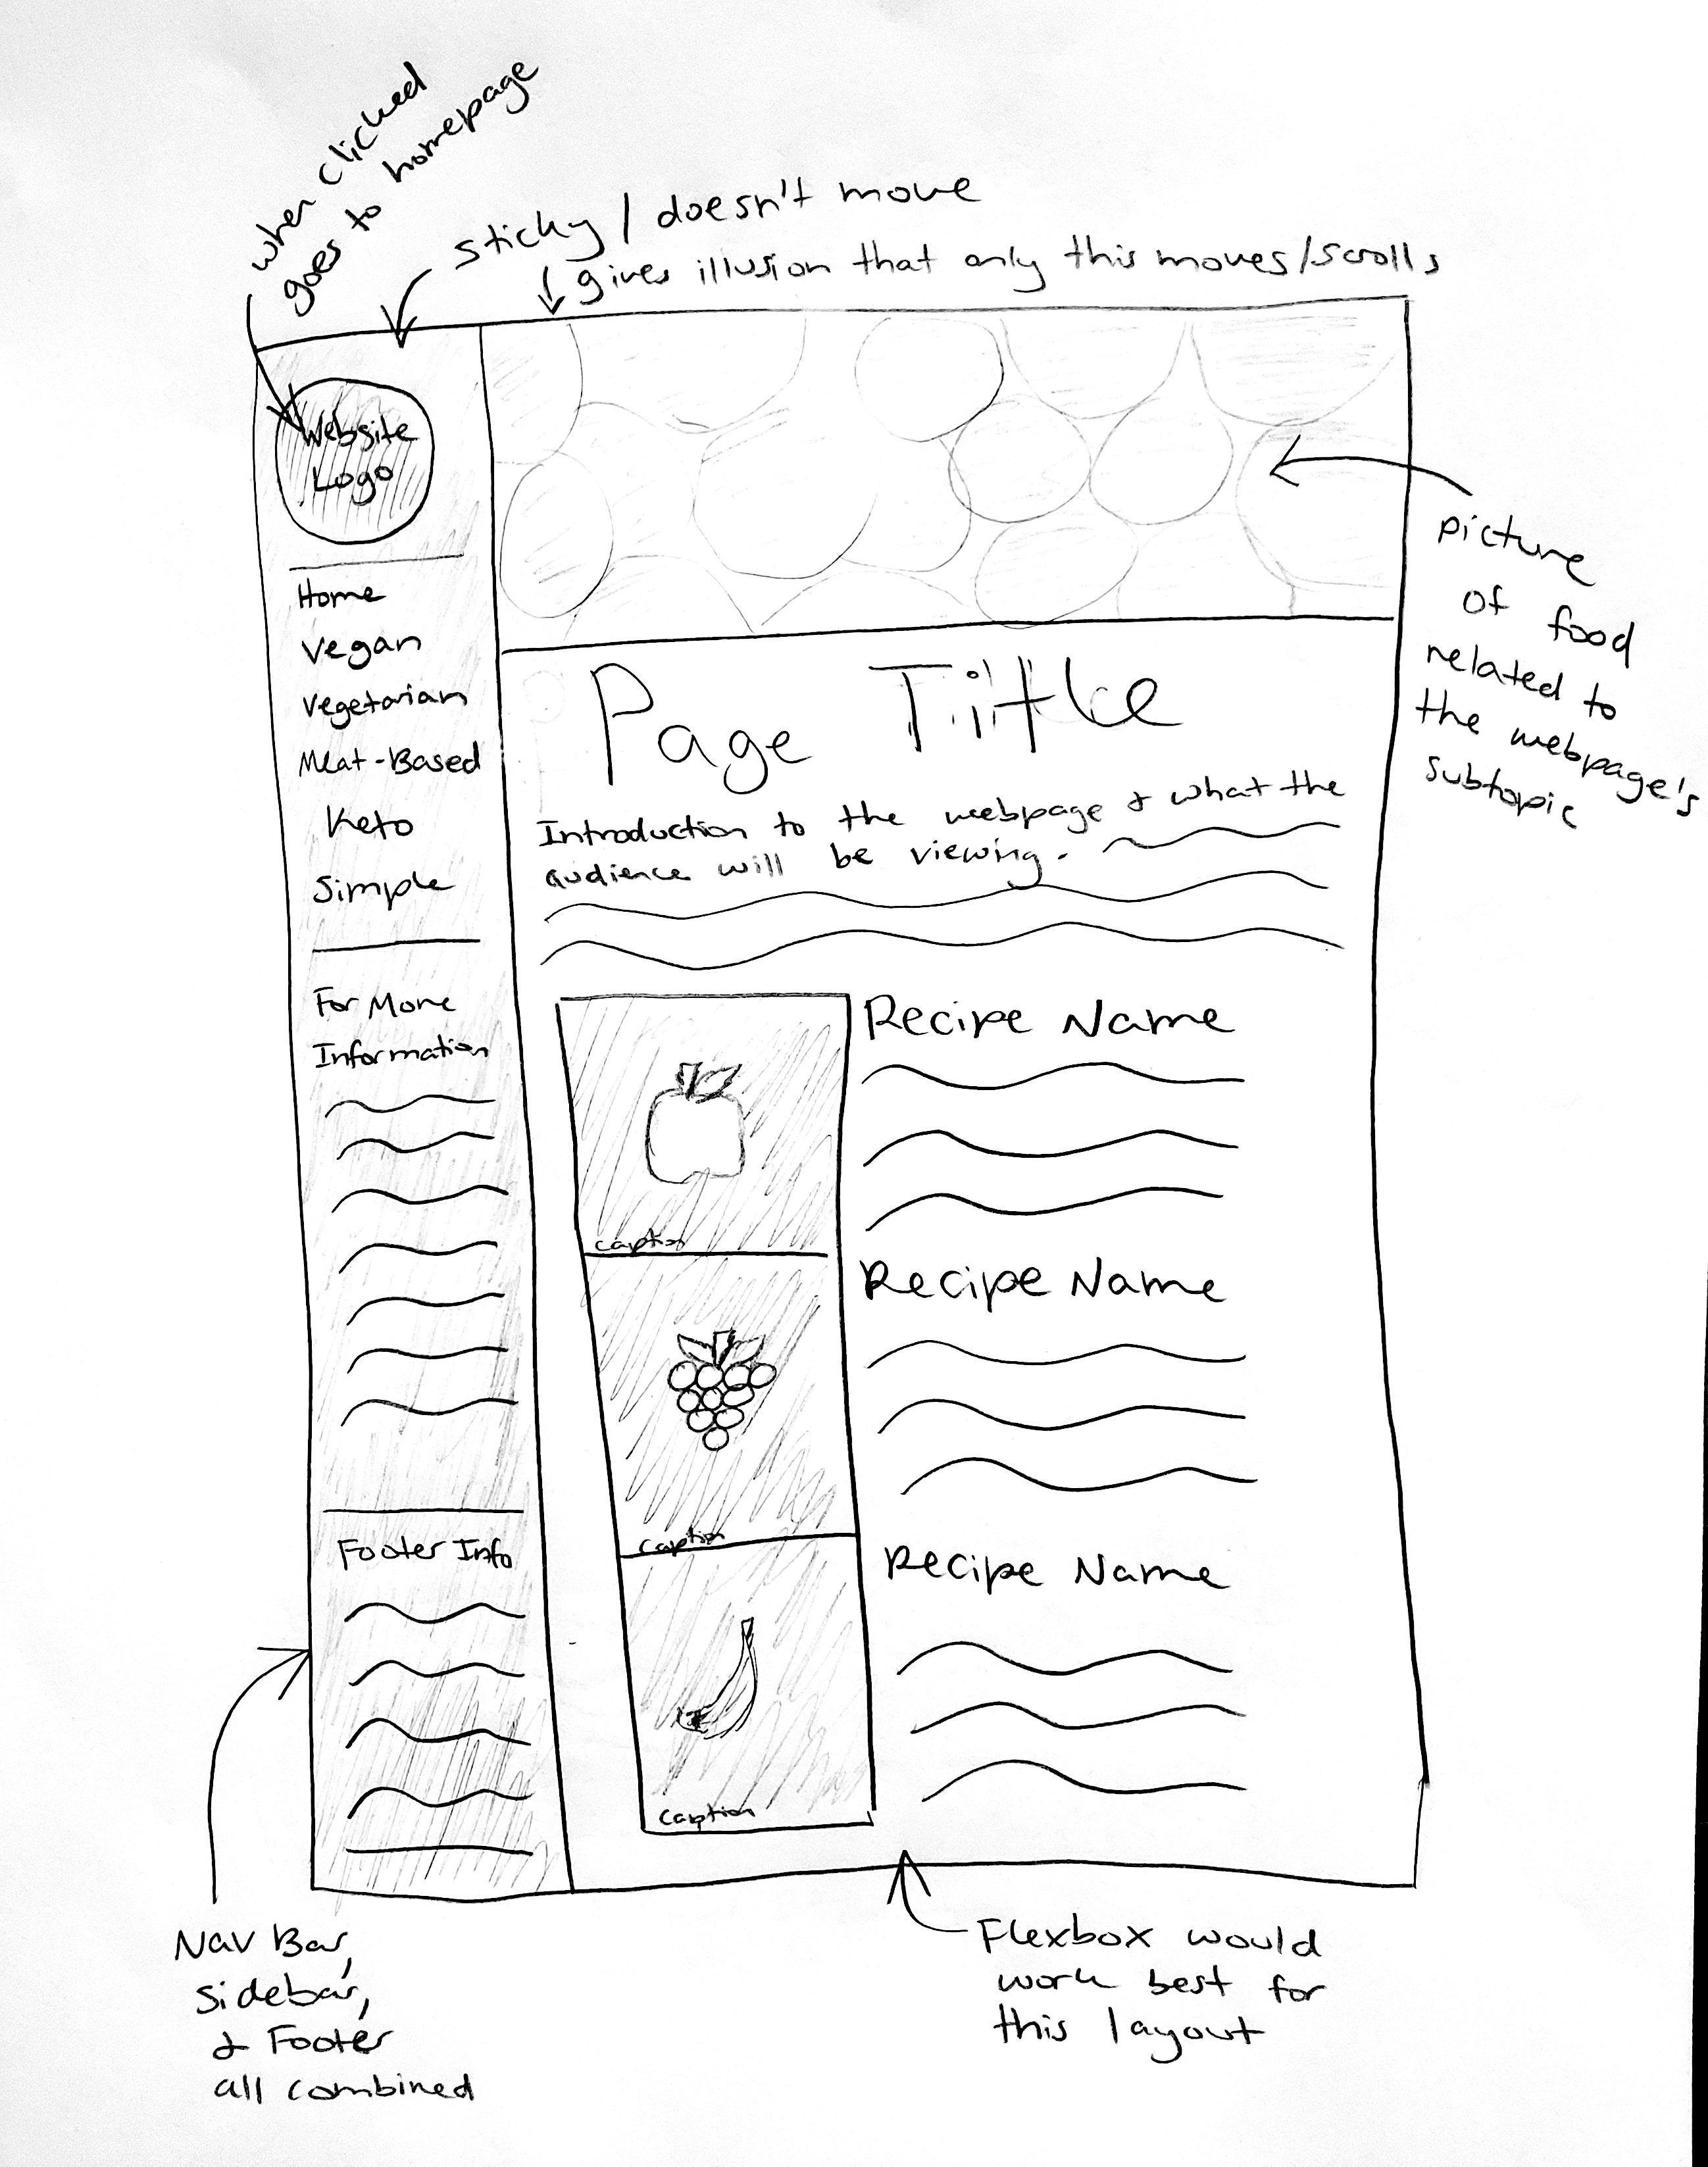 when clicked
goes to homepage
sticky / doesn't move
gives illusion that only this moves/scrolls
Website
Logo
Home
Vegan
Vegetarian
Meat-Based
Keto
Simple
For More
Information
Footer Info
picture
of food
related to
the webpage's
subtopic
Page Title
Introduction to the webpage & what the
audience will be viewing.
Recipe Name
caption
Recipe Name
caption
Recipe Name
caption
Nav Bar,
sidebar,
& Footer
all combined
Flexbox would
work best for
this layout